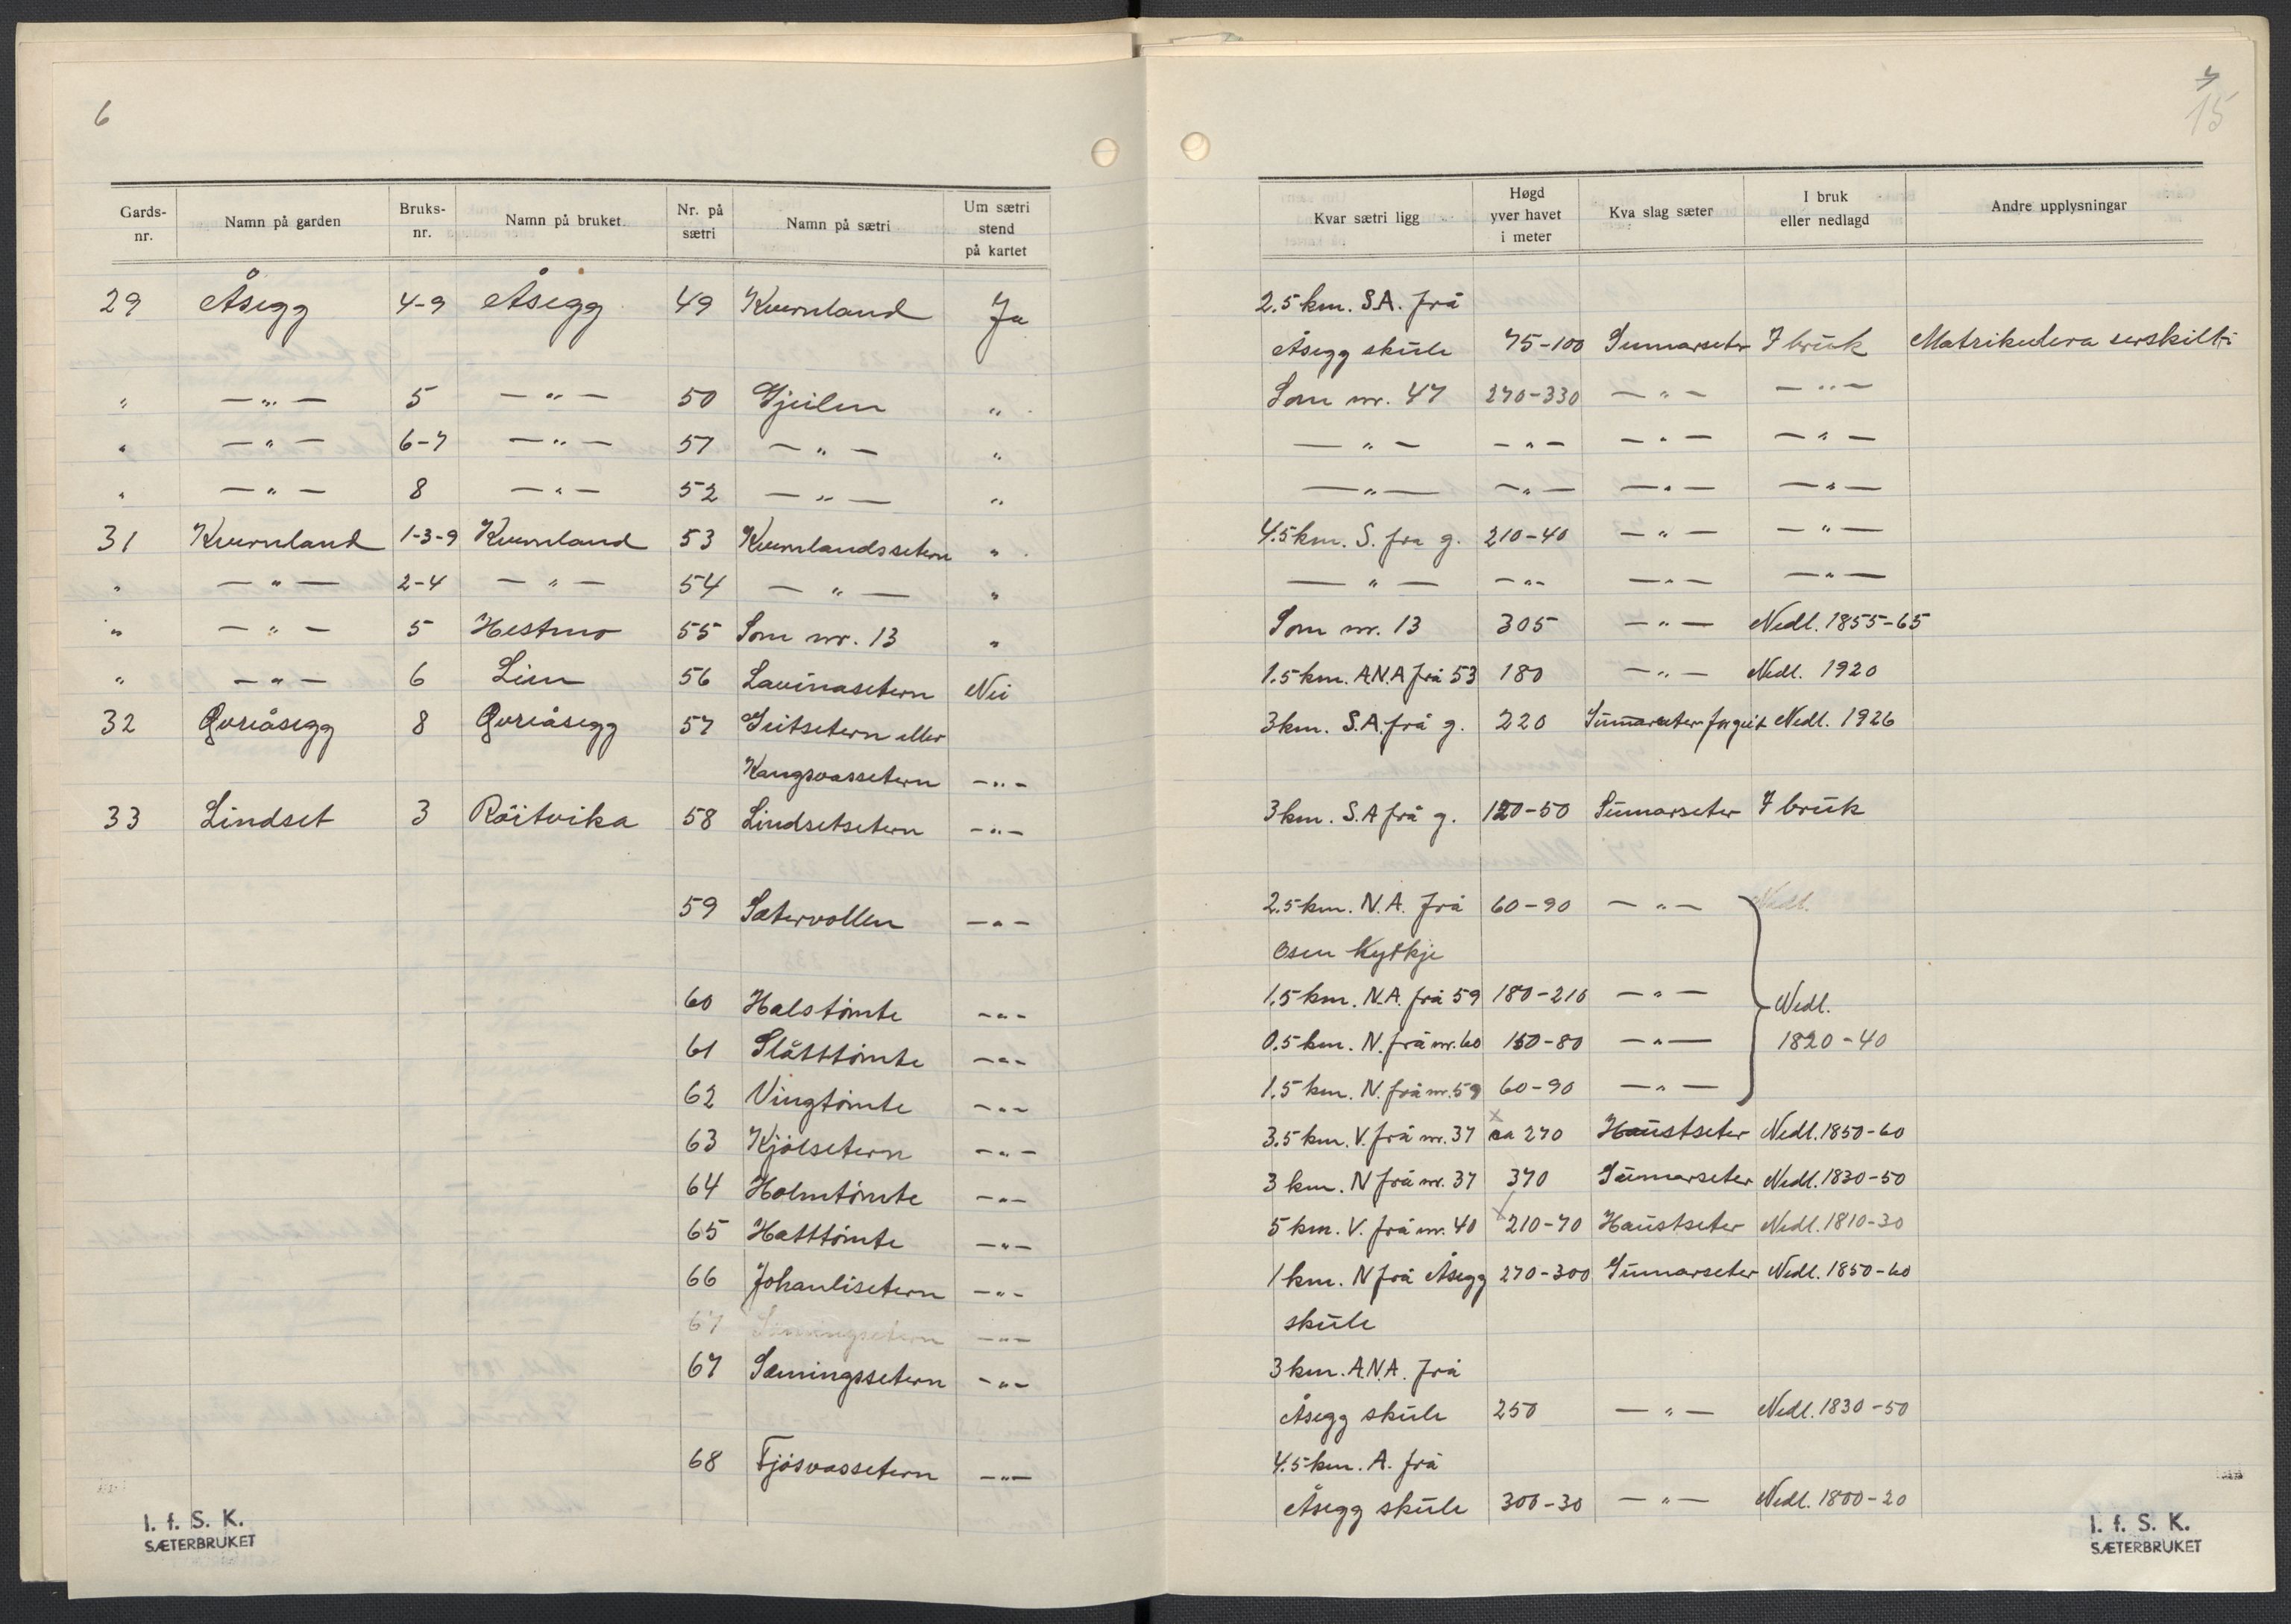 6
Gards-nr. Namn på garden Bruks-nr. Namn på bruket Nr. på sætri Namn på sætri Um sætri stend på kartet
29 Åsegg 4-9 Åsegg 49 Kvernland Ja
" — " — 5 — " — 50 Gjeilen "
" — " — 6-7 — " — 51 — " — "
" — " — 8 — " — 52 — " — "
31 Kvernland 1-3-9 Kvernland 53 Kvernlandssetern "
" — " — 2-4 — " — 54 — " — "
" — " — 5 Hestmo 55 Som nr. 13 "
" — " — 6 Lien 56 Lavinasetern Nei
32 Goriåsegg 8 Goriåsegg 57 Geitsetern eller
Kangsvassetern — " —
33 Lindset 3 Röitvika 58 Lindsetsetern — " —
59 Sætervollen — " —
60 Halstömte — " —
61 Slåtttömte — " —
62 Vingtömte — " —
63 Kjölsetern — " —
64 Holmtömte — " —
65 Hatttömte — " —
66 Johanlisetern — " —
67 — " —
67 Sæmingssetern — " —
68 Fjösvassetern — " —
I. f. S. K.
SÆTERBRUKET
7
15
Kvar sætri ligg Høgd yver havet i meter Kva slag sæter I bruk eller nedlagd Andre upplysningar
2.5 km. S.A. frå
Åsegg skule 75-100 Sumarseter I bruk Matrikulera serskilt
Som nr. 47 270-330 — " — — " —
— " — — " — — " — — " —
— " — — " — — " — — " —
4.5 km. S. fra g. 210-40 — " — — " —
— " — — " — — " — — " —
Som nr. 13 305 — " — Nedl. 1855-65
1.5 km. A.N.A frå 53 180 — " — Nedl. 1920
3 km. S.A. frå g. 220 Sumarseter for geit Nedl. 1926
3 km. S.A frå g. 120-50 Sumarseter I bruk
2.5 km. N.A. frå 60-90 — " — Nedl.
Osen kyrkje
1.5 km. N.A. frå 59 180-210 — " — Nedl.
0.5 km. N. frå nr. 60 150-80 — " — 1820-40
1.5 km. N. frå nr. 59 60-90 — " —
3.5 km. V. frå nr. 37 x ca 270 Haustseter Nedl. 1850-60
3 km. N frå nr. 37 370 Sumarseter Nedl. 1830-50
5 km. V. frå nr. 40 x 210-70 Haustseter Nedl. 1810-30
1 km. N frå Åsegg 270-300 Sumarseter Nedl. 1850-60
skule
3 km. A.N.A. frå
Åsegg skule 250 — " — Nedl. 1830-50
4.5 km. A. frå
Åsegg skule 300-30 — " — Nedl. 1800-20
I. f. S. K.
SÆTERBRUKET